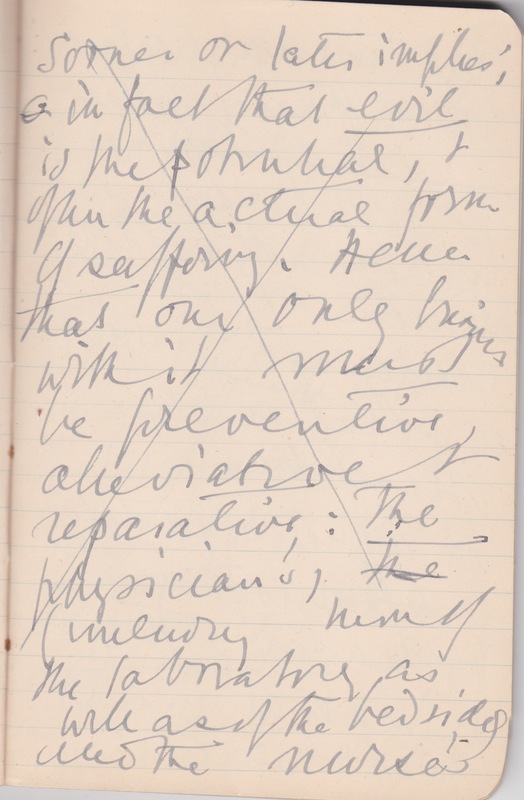 sooner or later implies,
in fact that evil
is the potential, &
often the actual form
of suffering. Hence
that our only
with it must
be preventive,
alleviative &
reparative: The
physician's, the
(including
the laboratory as
well as of the bedside)
and the nurse's